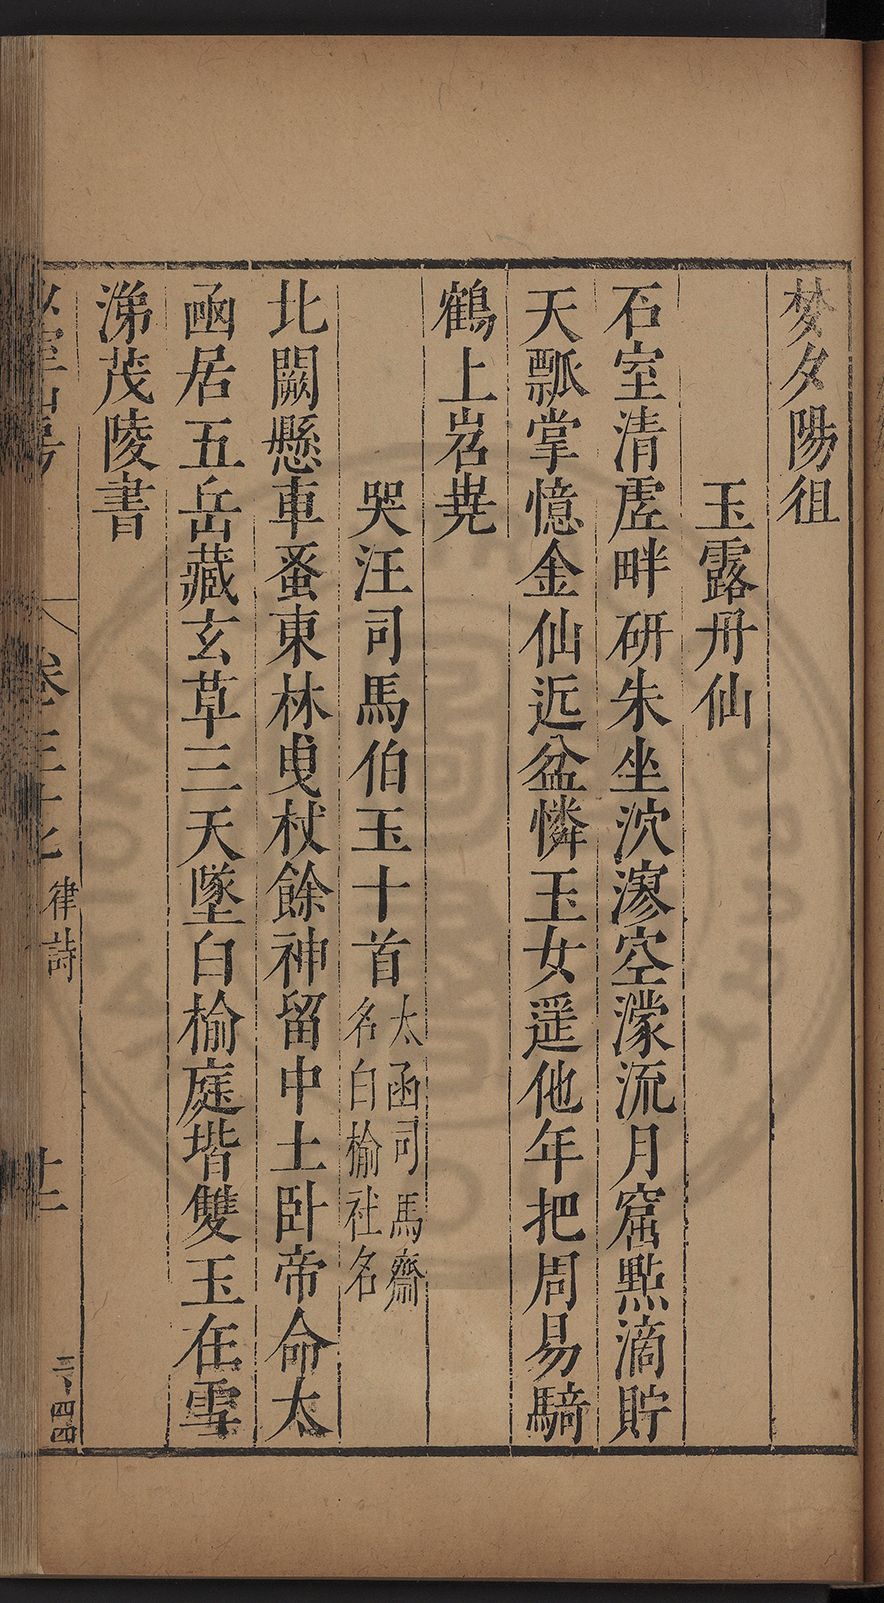 梦夕陽徂
玉露丹仙
石室清虛畔研朱坐泬漻空濛流月窟點滴貯
天瓢掌憶金仙近盆憐玉女遥他年把周易騎
鶴上岧嶤
哭汪司馬伯玉十首
太函司馬齋
名白榆社名
北闕懸車蚤東林曳杖餘神留中土卧帝命太
函居五岳藏玄草三天墜白榆庭堦雙玉在雪
涕茂陵書
卷三十七
律詩
廿二
三、四四